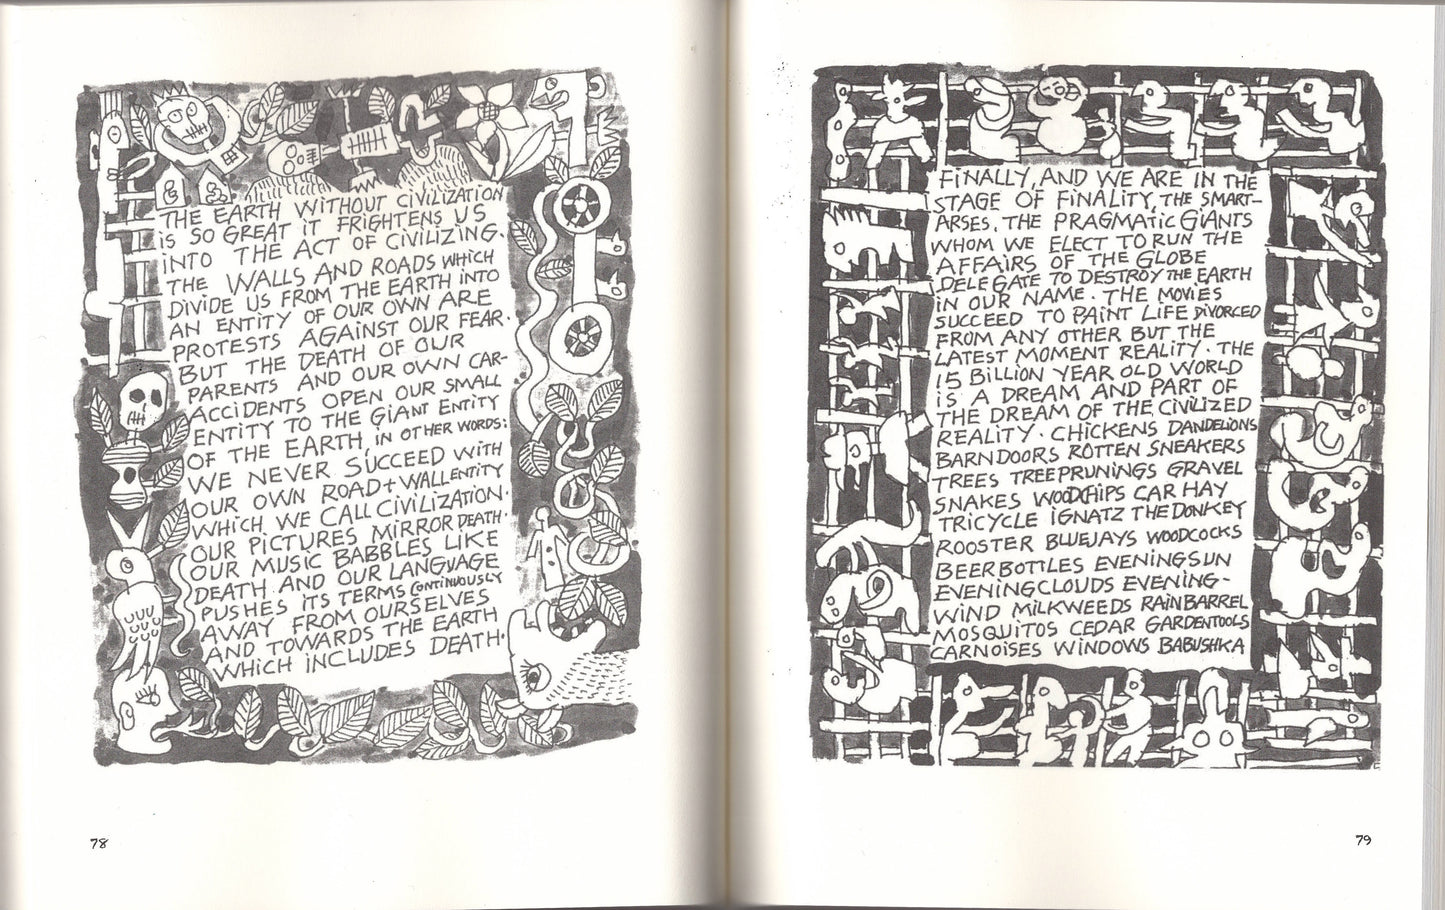 THE EARTH WITHOUT CIVILIZATION
IS SO GREAT IT FRIGHTENS US
INTO THE ACT OF CIVILIZING.
THE WALLS AND ROADS WHICH
DIVIDE US FROM THE EARTH INTO
AN ENTITY OF OUR OWN ARE
PROTESTS AGAINST OUR FEAR.
BUT THE DEATH OF OUR
PARENTS AND OUR OWN CAR-
ACCIDENTS OPEN OUR SMALL
ENTITY TO THE GIANT ENTITY
OF THE EARTH, IN OTHER WORDS:
WE NEVER SUCCEED WITH
OUR OWN ROAD + WALL ENTITY
WHICH WE CALL CIVILIZATION.
OUR PICTURES MIRROR DEATH.
OUR MUSIC BABBLES LIKE
DEATH AND OUR LANGUAGE
PUSHES ITS TERMS CONTINUOUSLY
AWAY FROM OURSELVES
AND TOWARDS THE EARTH
WHICH INCLUDES DEATH.
78
FINALLY, AND WE ARE IN THE
STAGE OF FINALITY, THE SMART-
ARSES, THE PRAGMATIC GIANTS
WHOM WE ELECT TO RUN THE
AFFAIRS OF THE GLOBE
DELEGATE TO DESTROY THE EARTH
IN OUR NAME. THE MOVIES
SUCCEED TO PAINT LIFE DIVORCED
FROM ANY OTHER BUT THE
LATEST MOMENT REALITY. THE
15 BILLION YEAR OLD WORLD
IS A DREAM AND PART OF
THE DREAM OF THE CIVILIZED
REALITY. CHICKENS DANDELIONS
BARNDOORS ROTTEN SNEAKERS
TREES TREEPRUNINGS GRAVEL
SNAKES WOODCHIPS CAR HAY
TRICYCLE IGNATZ THE DONKEY
ROOSTER BLUEJAYS WOODCOCKS
BEERBOTTLES EVENINGSUN
EVENINGCLOUDS EVENING-
WIND MILKWEEDS RAINBARREL
MOSQUITOS CEDAR GARDENTOOLS
CARNOISES WINDOWS BABUSHKA
79